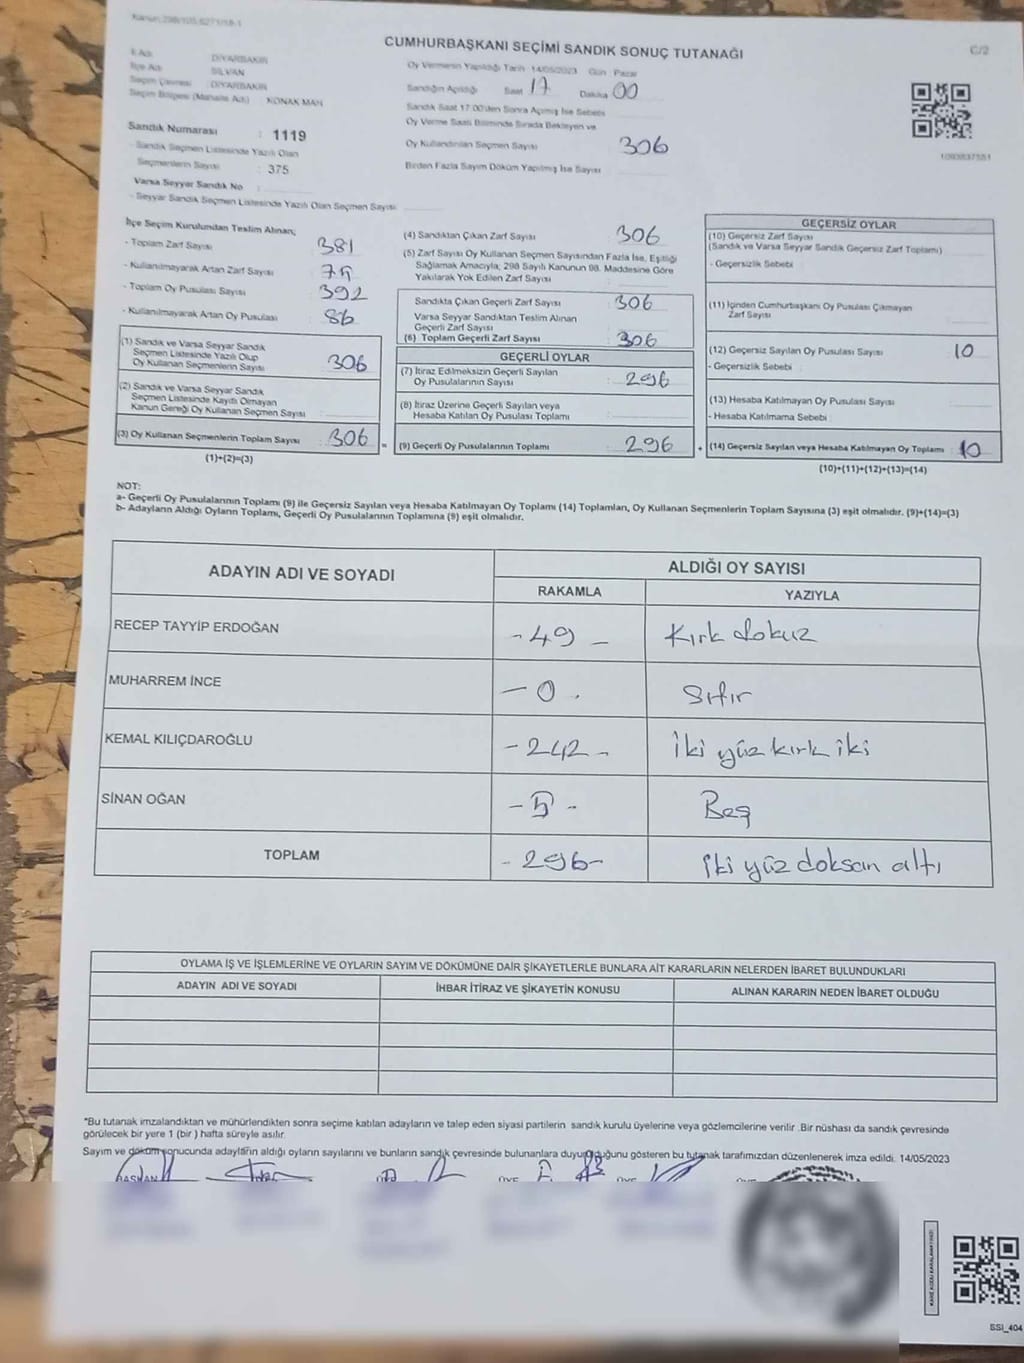 CUMHURBAŞKANI SEÇİMİ SANDIK SONUÇ TUTANAĞI
C/2
İl Adı DİYARBAKIR
İlçe Adı SİLVAN
Seçim Çevresi : DİYARBAKIR
Seçim Bölgesi (Mahalle Adı) : KONAK MAH
Sandık Numarası : 1119
- Sandık Seçmen Listesinde Yazılı Olan
Seçmenlerin Sayısı : 375
Varsa Seyyar Sandık No :
- Seyyar Sandık Seçmen Listesinde Yazılı Olan Seçmen Sayısı
Oy Vermenin Yapıldığı Tarih : 14/05/2023 Gün : Pazar
Sandığın Açıldığı Saat 17 Dakika 00
Sandık Saat 17:00'den Sonra Açılmış İse Sebebi
Oy Verme Saati Bitiminde Sırada Bekleyen ve
Oy Kullandırılan Seçmen Sayısı 306
Birden Fazla Sayım Döküm Yapılmış İse Sayısı
İlçe Seçim Kurulundan Teslim Alınan;
- Toplam Zarf Sayısı 381
- Kullanılmayarak Artan Zarf Sayısı 75
- Toplam Oy Pusulası Sayısı 392
- Kullanılmayarak Artan Oy Pusulası 86
(1) Sandık ve Varsa Seyyar Sandık
Seçmen Listesinde Yazılı Olup
Oy Kullanan Seçmenlerin Sayısı 306
(2) Sandık ve Varsa Seyyar Sandık
Seçmen Listesinde Kayıtlı Olmayan
Kanun Gereği Oy Kullanan Seçmen Sayısı
(3) Oy Kullanan Seçmenlerin Toplam Sayısı : 306
(1)+(2)=(3)
(4) Sandıktan Çıkan Zarf Sayısı 306
(5) Zarf Sayısı Oy Kullanan Seçmen Sayısından Fazla İse, Eşitliği
Sağlamak Amacıyla; 298 Sayılı Kanunun 98. Maddesine Göre
Yakılarak Yok Edilen Zarf Sayısı
Sandıkta Çıkan Geçerli Zarf Sayısı 306
Varsa Seyyar Sandıktan Teslim Alınan
Geçerli Zarf Sayısı
(6) Toplam Geçerli Zarf Sayısı 306
GEÇERLİ OYLAR
(7) İtiraz Edilmeksizin Geçerli Sayılan
Oy Pusulalarının Sayısı : 296
(8) İtiraz Üzerine Geçerli Sayılan veya
Hesaba Katılan Oy Pusulası Toplamı
(9) Geçerli Oy Pusulalarının Toplamı : 296
GEÇERSİZ OYLAR
(10) Geçersiz Zarf Sayısı
(Sandık ve Varsa Seyyar Sandık Geçersiz Zarf Toplamı)
- Geçersizlik Sebebi
(11) İçinden Cumhurbaşkanı Oy Pusulası Çıkmayan
Zarf Sayısı
(12) Geçersiz Sayılan Oy Pusulası Sayısı 10
- Geçersizlik Sebebi
(13) Hesaba Katılmayan Oy Pusulası Sayısı
- Hesaba Katılmama Sebebi
(14) Geçersiz Sayılan veya Hesaba Katılmayan Oy Toplamı : 10
(10)+(11)+(12)+(13)=(14)
NOT:
a- Geçerli Oy Pusulalarının Toplamı (9) ile Geçersiz Sayılan veya Hesaba Katılmayan Oy Toplamı (14) Toplamları, Oy Kullanan Seçmenlerin Toplam Sayısına (3) eşit olmalıdır. (9)+(14)=(3)
b- Adayların Aldığı Oyların Toplamı, Geçerli Oy Pusulalarının Toplamına (9) eşit olmalıdır.
ADAYIN ADI VE SOYADI ALDIĞI OY SAYISI
RAKAMLA YAZIYLA
RECEP TAYYİP ERDOĞAN - 49 - Kırk dokuz
MUHARREM İNCE - 0 - Sıfır
KEMAL KILIÇDAROĞLU - 242 - İki yüz kırk iki
SİNAN OĞAN - 5 - Beş
TOPLAM - 296 - İki yüz doksan altı
OYLAMA İŞ VE İŞLEMLERİNE VE OYLARIN SAYIM VE DÖKÜMÜNE DAİR ŞİKAYETLERLE BUNLARA AİT KARARLARIN NELERDEN İBARET BULUNDUKLARI
ADAYIN ADI VE SOYADI İHBAR İTİRAZ VE ŞİKAYETİN KONUSU ALINAN KARARIN NEDEN İBARET OLDUĞU
*Bu tutanak imzalandıktan ve mühürlendikten sonra seçime katılan adayların ve talep eden siyasi partilerin sandık kurulu üyelerine veya gözlemcilerine verilir .Bir nüshası da sandık çevresinde
görülecek bir yere 1 (bir ) hafta süreyle asılır.
Sayım ve döküm sonucunda adayların aldığı oyların sayılarını ve bunların sandık çevresinde bulunanlara duyurulduğunu gösteren bu tutanak tarafımızdan düzenlenerek imza edildi. 14/05/2023
BAŞKAN
SSI_404